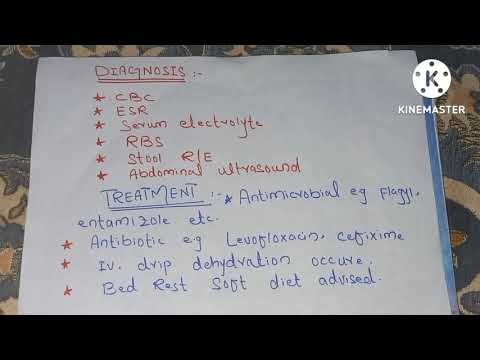 DIAGNOSIS :-
★ CBC
★ ESR
★ Serum electrolyte
★ RBS
★ Stool R/E
★ Abdominal ultrasound
TREATMENT :- ★ Antimicrobial eg flagyl,
entamizole etc.
★ Antibiotic e.g Levofloxacin, cefixime
★ I.v. drip dehydration occure.
★ Bed Rest Soft diet advised.
KINEMASTER